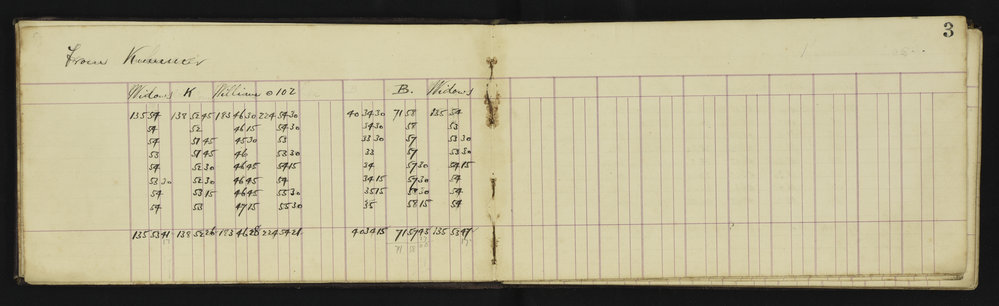 3
From
Widows K William 0102 B. Widows
135 54 138 52 45 183 46 30 224 54 30 40 34 30 71 58 135 54
54 52 46 15 54 30 34 30 58 53
54 51 45 45 30 53 33 30 57 53 30
53 51 45 46 53 30 33 57 53 30
54 52 30 46 45 54 15 34 57 30 54 15
53 30 52 30 46 45 54 34 15 57 30 54
54 53 15 46 45 55 30 35 15 58 30 54
54 53 47 15 55 30 35 58 15 54
135 53 41 138 52 26 183 46 28 224 54 21 40 34 15 71 57 43 135 53 47
71 58